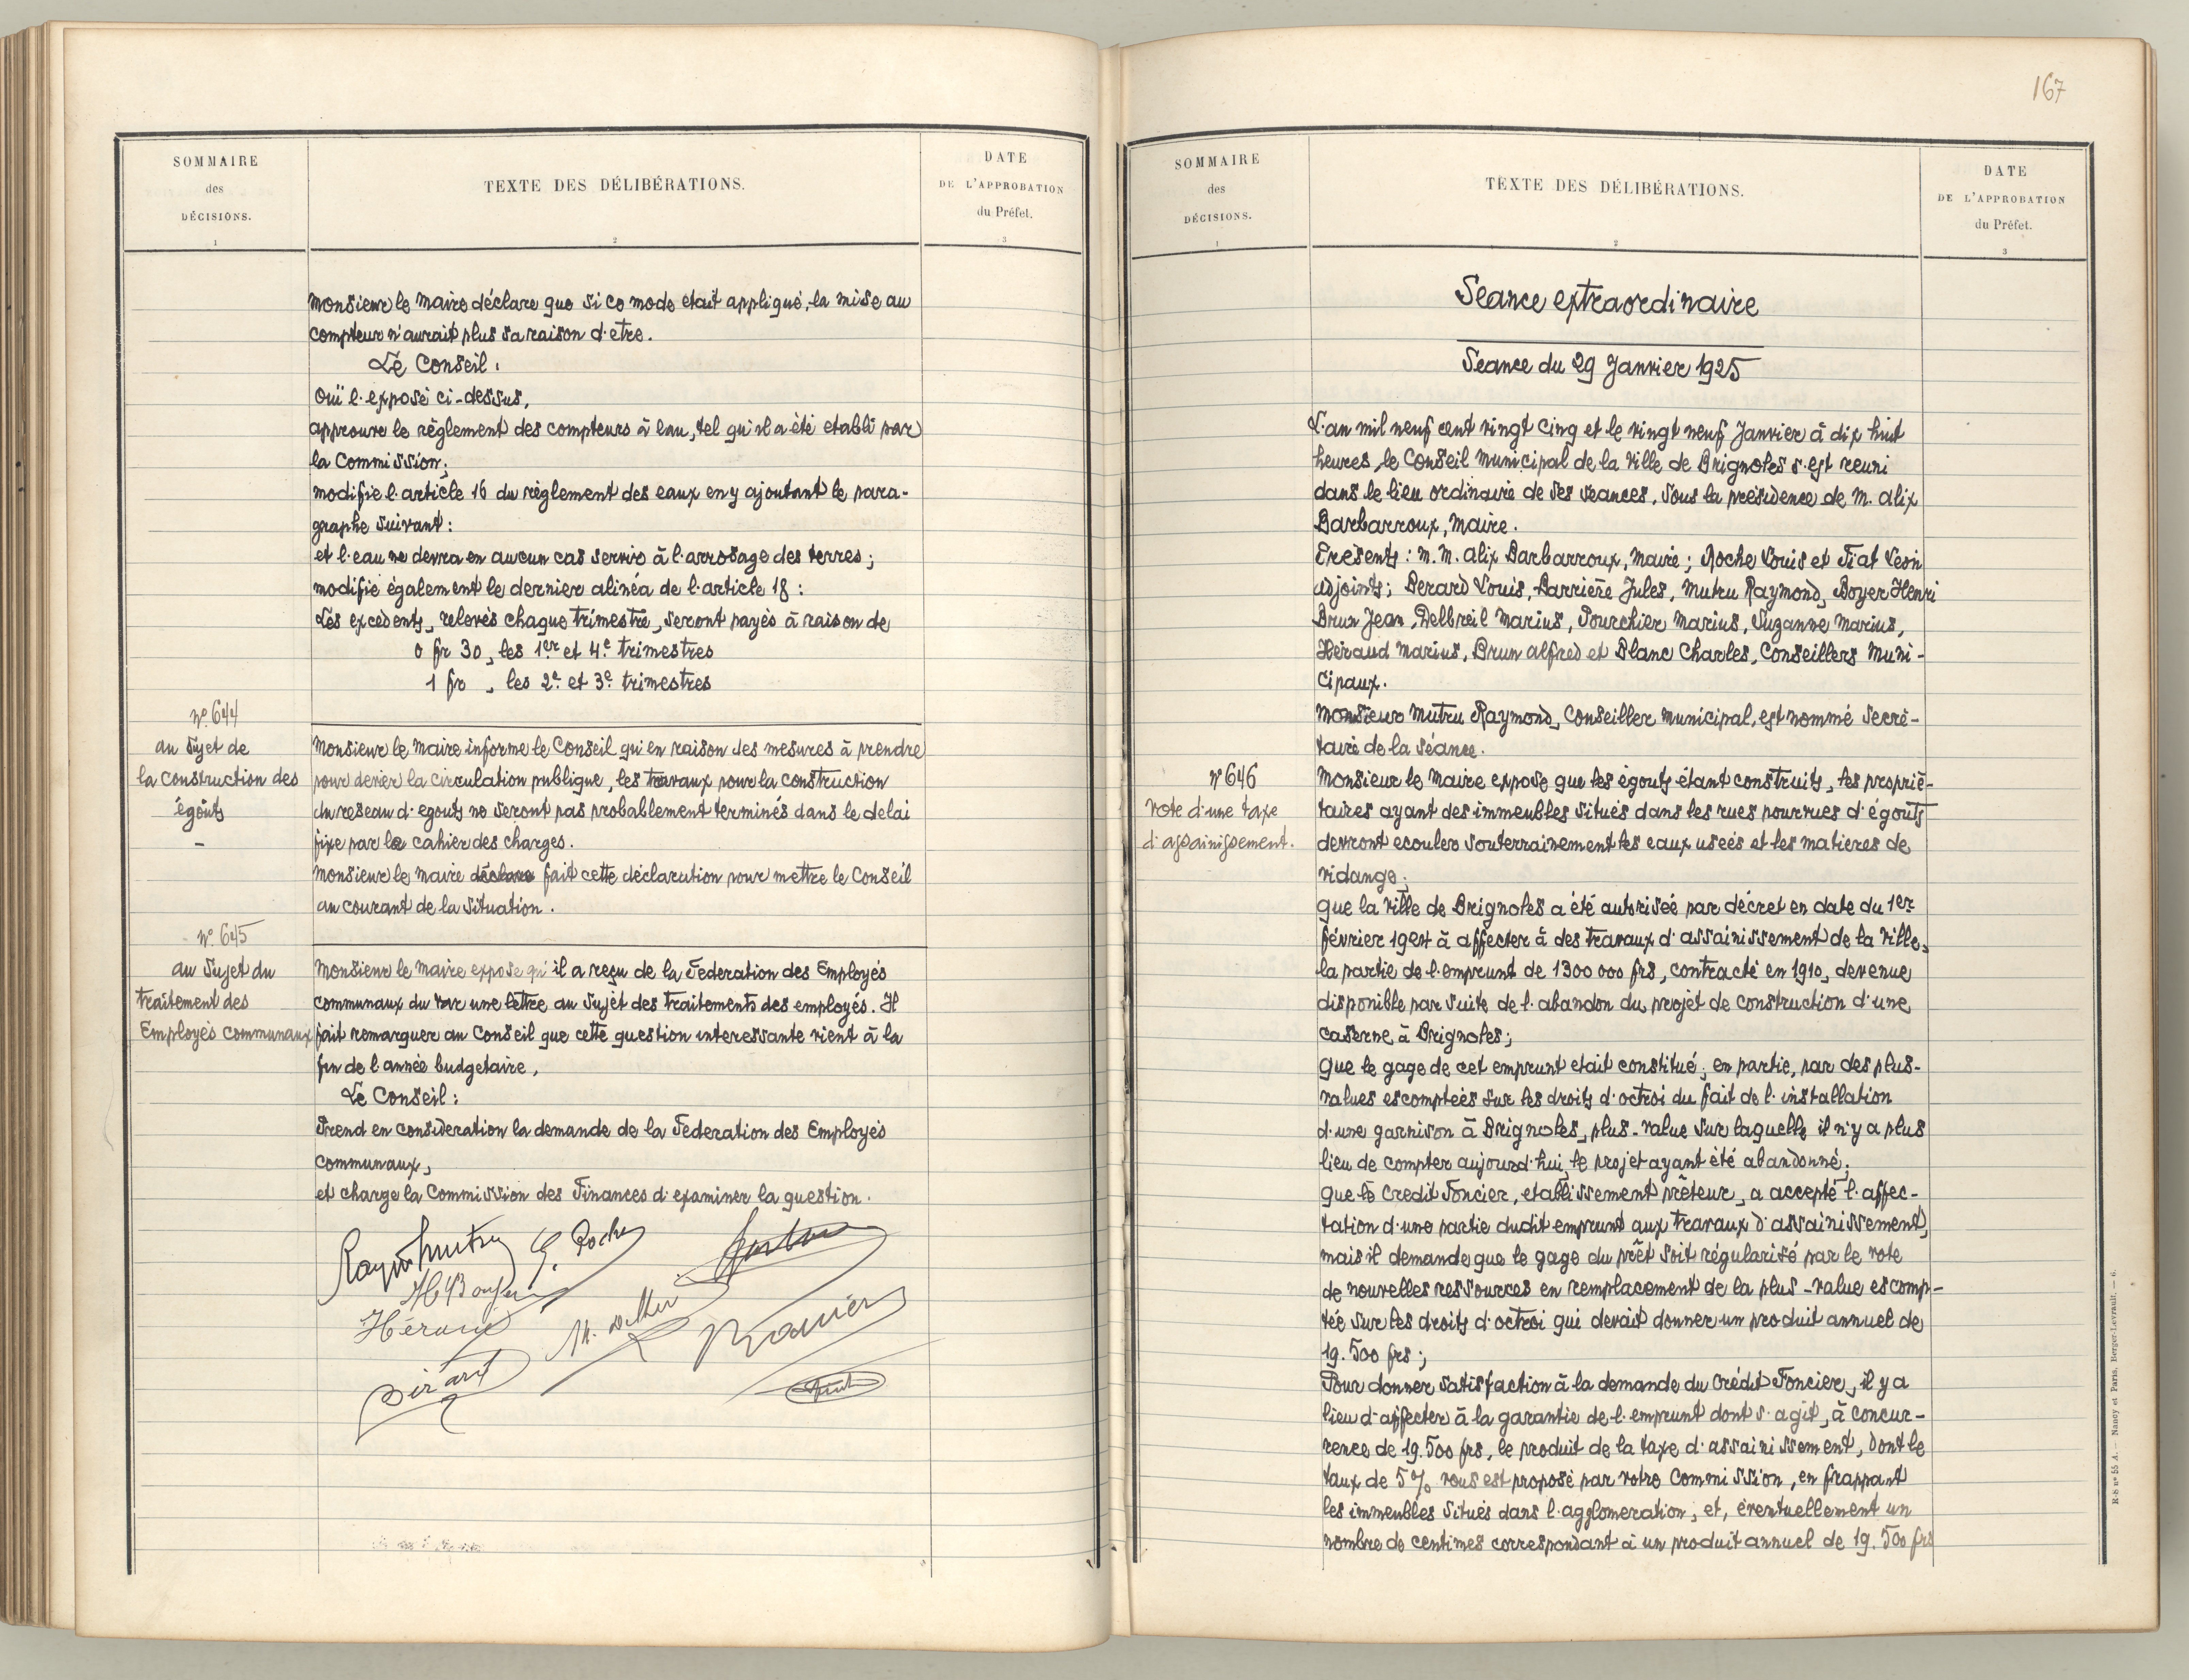 SOMMAIRE
des
DÉCISIONS.
1
TEXTE DES DÉLIBÉRATIONS.
2
DATE
DE L'APPROBATION
du Préfet.
3
Monsieur le Maire déclare que si ce mode etait appliqué, la mise au
compteur n'aurait plus sa raison d'etre.
Le Conseil :
Ouï l'exposé ci-dessus,
approuve le règlement des compteurs à eau, tel qu'il a été etabli par
la Commission;
modifie l'article 16 du règlement des eaux en y ajoutant le para-
graphe suivant :
et l'eau ne devra en aucun cas servir à l'arrosage des terres ;
modifie également le dernier alinéa de l'article 18 :
Les excédents, relevés chaque trimestre, seront payés à raison de
0 fr 30, les 1er et 4e trimestres
1 fr , les 2e et 3e trimestres
No 644
au Sujet de
la Construction des
égouts
-
Monsieur le Maire informe le Conseil qu'en raison des mesures à prendre
pour dévier la circulation publique, les travaux pour la construction
du reseau d'egouts ne seront pas probablement terminés dans le delai
fixe par le cahier des charges.
Monsieur le Maire déclare fait cette déclaration pour mettre le Conseil
au courant de la situation.
No 645
au Sujet du
traitement des
Employés communaux
Monsieur le Maire expose qu'il a reçu de la Federation des Employés
communaux du Var une lettre au sujet des traitements des employés. Il
fait remarquer au Conseil que cette question interessante vient à la
fin de l'année budgetaire,
Le Conseil :
Prend en consideration la demande de la Federation des Employés
communaux,
et charge la Commission des Finances d'examiner la question.
Raymd Mutru
Roche
H Boyer
Héraud
Bérard
167
SOMMAIRE
des
DÉCISIONS.
1
TEXTE DES DÉLIBÉRATIONS.
2
DATE
DE L'APPROBATION
du Préfet.
3
Séance extraordinaire
Séance du 29 Janvier 1925
L'an mil neuf cent vingt cinq et le vingt neuf Janvier à dix huit
heures, le Conseil Municipal de la Ville de Brignoles s'est reuni
dans le lieu ordinaire de ses séances, sous la présidence de M. Alix
Barbarroux, Maire.
Présents : M. M. Alix Barbarroux, Maire ; Roche Louis et Fiat Léon
adjoints ; Berard Louis, Barrière Jules, Mutru Raymond, Boyer Henri
Brun Jean, Delbreil Marius, Pourchier Marius, Suzanne Marius,
Héraud Marius, Brun Alfred et Blanc Charles, Conseillers Muni-
cipaux.
Monsieur Mutru Raymond, Conseiller Municipal, est nommé Secré-
taire de la séance.
No 646
Vote d'une taxe
d'assainissement.
Monsieur le Maire expose que les égouts étant construits, les proprié-
taires ayant des immeubles situés dans les rues pourvues d'égouts
devront ecouler souterrainement les eaux useés et les matieres de
vidange ;
que la Ville de Brignoles a été autorisée par décret en date du 1er
février 1924 à affecter à des travaux d'assainissement de la Ville,
la partie de l'emprunt de 1300 000 frs, contracté en 1910, devenue
disponible par suite de l'abandon du projet de construction d'une
caserne à Brignoles ;
que le gage de cet emprunt etait constitué, en partie, par des plus-
values escomptées sur les droits d'octroi du fait de l'installation
d'une garnison à Brignoles, plus-value sur laquelle il n'y a plus
lieu de compter aujourd'hui, le projet ayant été abandonné;
que le Credit Foncier, etablissement prêteur, a accepté l'affec-
tation d'une partie dudit emprunt aux travaux d'assainissement,
mais il demande que le gage du prêt soit régularisé par le vote
de nouvelles ressources en remplacement de la plus-value escomp-
tée sur les droits d'octroi qui devait donner un produit annuel de
19.500 frs ;
Pour donner satisfaction à la demande du Crédit Foncier, il y a
lieu d'affecter à la garantie de l'emprunt dont s'agit, à concur-
rence de 19.500 frs, le produit de la taxe d'assainissement, dont le
taux de 5 % vous est proposé par votre Commission, en frappant
les immeubles situés dans l'agglomeration, et, éventuellement un
nombre de centimes correspondant à un produit annuel de 19.500 frs
R-S n° 55 A. — Nancy et Paris, Berger-Levrault. — 6.